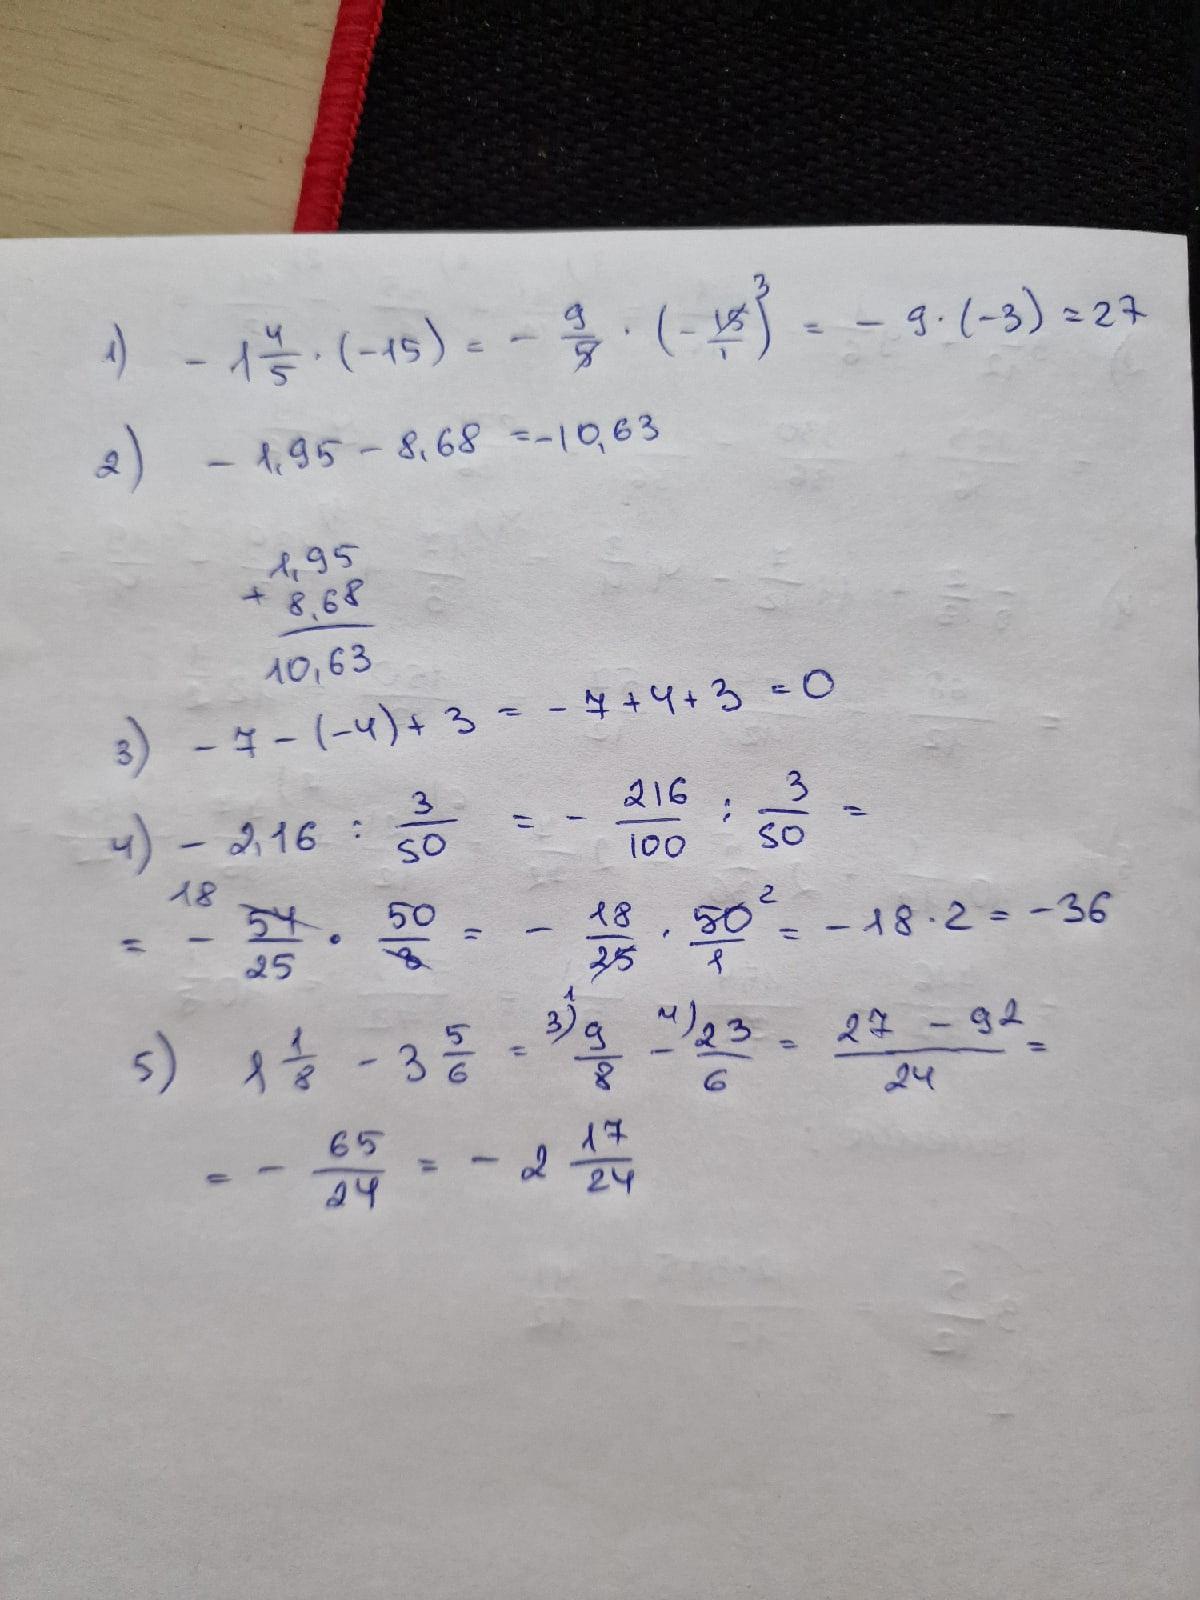 1) - 1 4/5 · (-15) = - 9/5 · (- 15/1)³ = - 9 · (-3) = 27
2) - 1,95 - 8,68 = -10,63
1,95
+ 8,68
10,63
3) - 7 - (-4) + 3 = - 7 + 4 + 3 = 0
4) - 2,16 : 3/50 = - 216/100 : 3/50 =
= - 18 54/25 · 50/3 = - 18/25 · 50²/1 = - 18 · 2 = - 36
5) 1 1/8 - 3 5/6 = 3) 9/8 - 4) 23/6 = 27 - 92/24 =
= - 65/24 = - 2 17/24